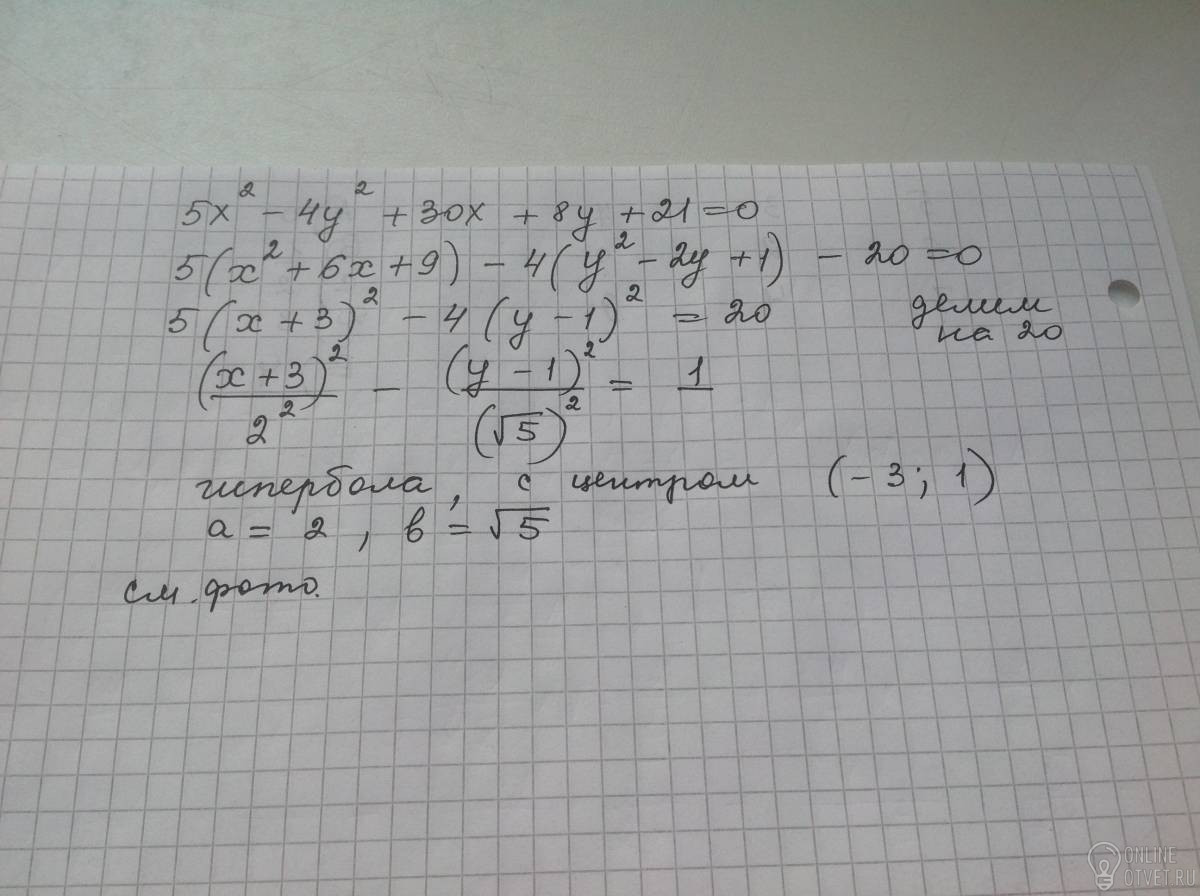 5x² - 4y² + 30x + 8y + 21 = 0
5(x² + 6x + 9) - 4(y² - 2y + 1) - 20 = 0
5(x + 3)² - 4(y - 1)² = 20 делим на 20
(x + 3)²/2² - (y - 1)²/(√5)² = 1
гипербола, с центром (-3; 1)
a = 2, в = √5
см. фото.
ONLINE
OTVET.RU